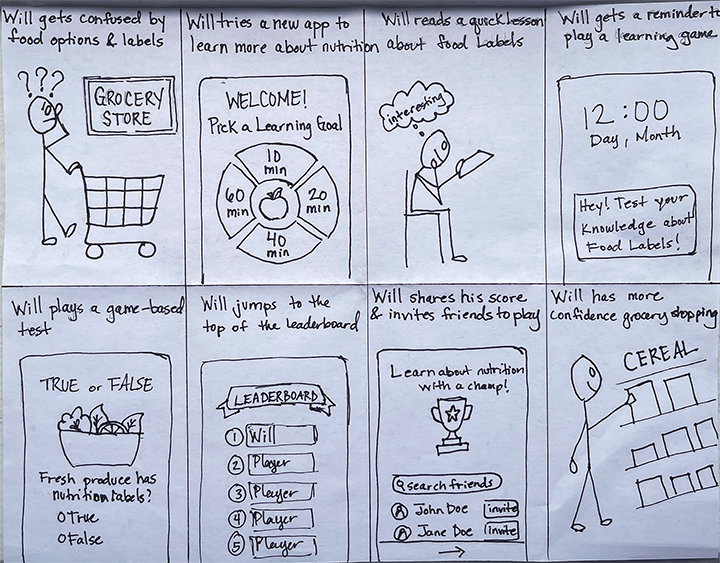 Will gets confused by
food options & labels
? ? ?
GROCERY
STORE
Will tries a new app to
learn more about nutrition
WELCOME!
Pick a Learning Goal
10
min
60
min
20
min
40
min
Will reads a quick lesson
about food Labels
interesting
Will gets a reminder to
play a learning game
12:00
Day, Month
Hey! Test your
Knowledge about
Food Labels!
Will plays a game-based
test
TRUE or FALSE
Fresh produce has
nutrition labels?
O True
O False
Will jumps to the
top of the leaderboard
LEADERBOARD
1 Will
2 Player
3 Player
4 Player
5 Player
Will shares his score
& invites friends to play
Learn about nutrition
with a champ!
search friends
John Doe invite
Jane Doe invite
Will has more
confidence grocery shopping
CEREAL